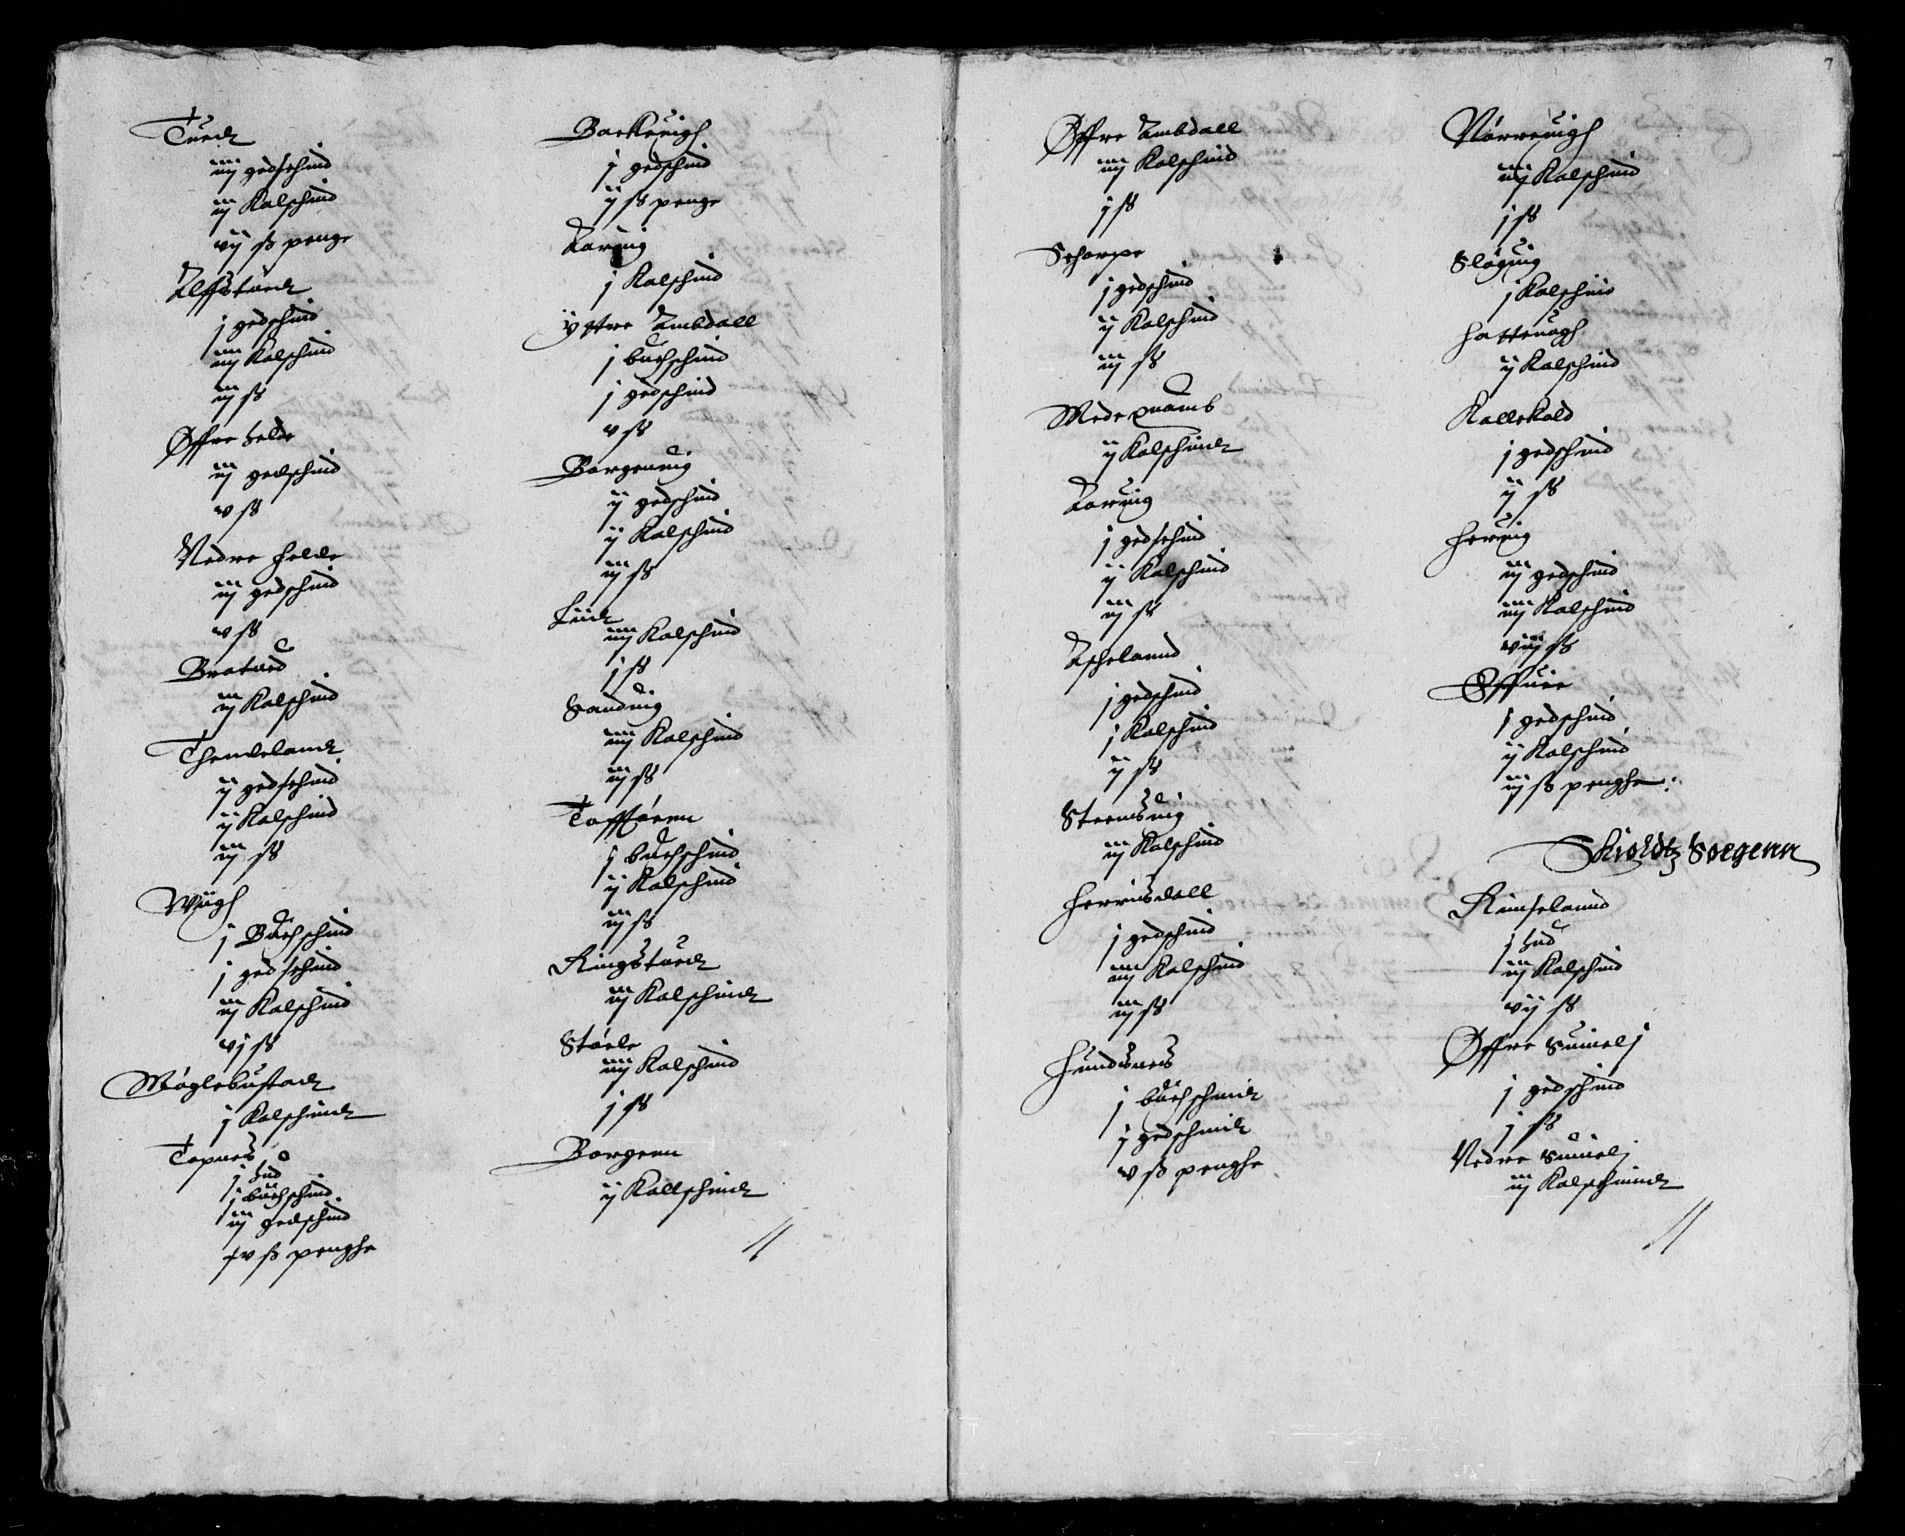 Tued
iiij gedschind
iij Kalschind
vij ß penge
Alffstued
j gedschind
iiij Kalschind
iij ß
Øffre Helde
iij gedschind
v ß
Nedre Helde
iij gedschind
v ß
Bratued
iij Kalschind
Thendeland
ij gedschind
ij Kalschind
iij ß
Wiigh
j Buchschind
j gedschind
iij Kalschind
vj ß
Møglebustad
j Kalschind
Topnes
j Hud
j buchschind
iij gedschind
xv ß penghe
Barkeuigh
j gedschind
ij ß penge
Karuig
j Kalschind
Yttre Ambdall
j buchschind
j gedschind
v ß
Borgeuuig
ij gedschind
ij Kalschind
iij ß
Liid
iiij Kalschind
j ß
Sanduig
iiij Kalschind
iij ß
Tofftøren
j buchschind
ij Kalschind
iij ß
Ringstued
iij Kalschind
Støele
iiij Kalschind
j ß
Borgenn
ij Kallschind
7
Øffre Ambdall
iiij Kalschind
j ß
Schorpe
j gedschind
ij Kalschind
iij ß
Mede quamb
ij Kalschind
Karuig
j gedschind
ij Kalschind
iij ß
Aschelannd
j gedschind
j Kalschind
ij ß
Steenssuig
iij Kalschind
Herrisdall
j gedschind
iiij Kalschind
iij ß
Hundsnes
j buchschind
j gedschind
v ß penghe
Nørreuigh
iiij Kalschind
j ß
Sløguig
j Kalschind
Hatteuogh
ij Kalschind
Kallekold
j gedschind
ij ß
Heruig
iij gedschind
iiij Kalschind
viij ß
Øffuie
j gedschind
ij Kalschind
iij ß penghe
Skioldtz Sogenn
Rimselannd
j Hud
iij Kalschind
vij ß
Øffre Suinelj
j gedschind
j ß
Nedre Suinelj
iij Kalschinnd